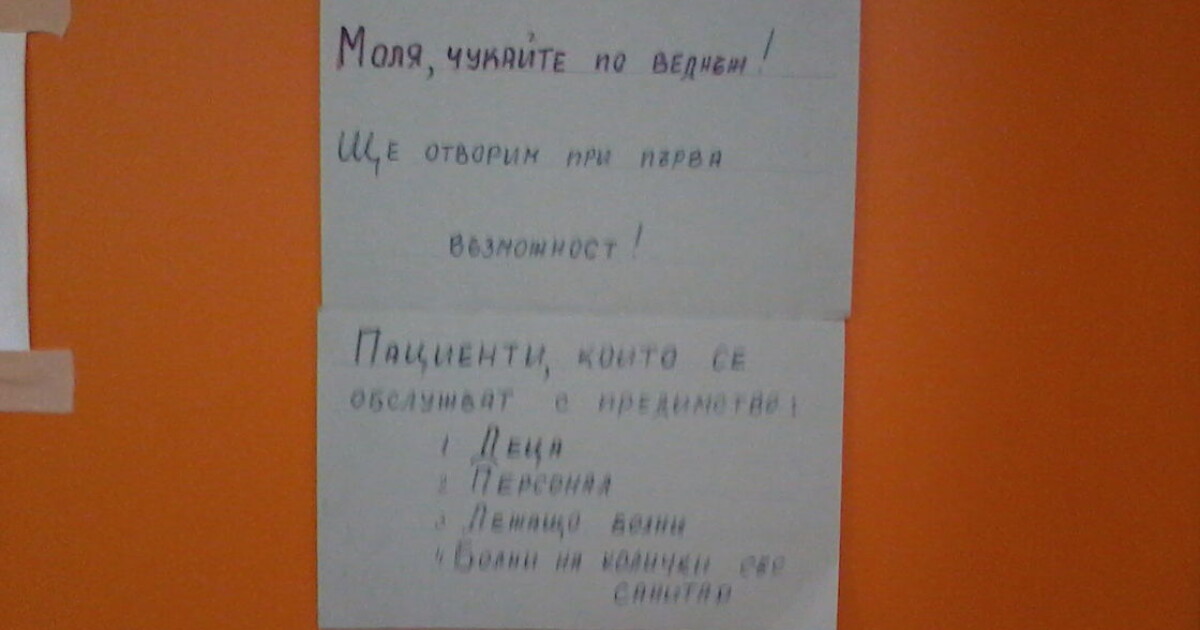 Моля, чукайте по веднъж!
Ще отворим при първа
възможност!
Пациенти, които се
обслужват с предимство:
1 Деца
2 Персонал
3 Лежащо болни
4 Болни на колички със
санитар